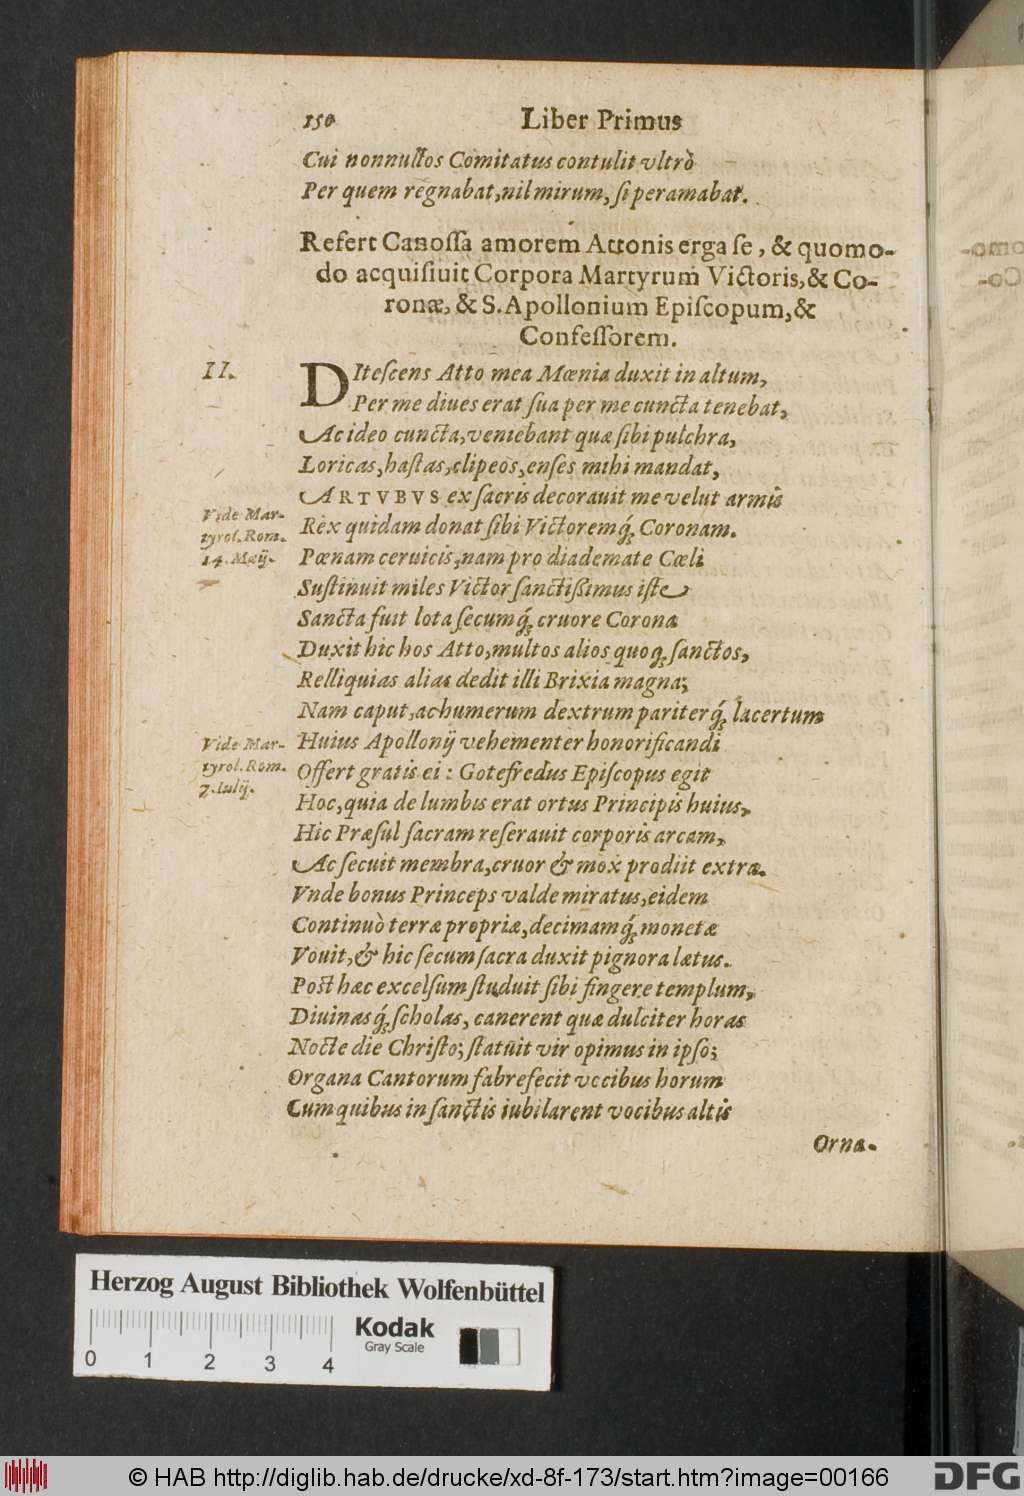 150 Liber Primus
Cui nonnullos Comitatus contulit vltrò
Per quem regnabat, nil mirum, ſi peramabat.
Refert Canoſſa amorem Attonis erga ſe, & quomo-
do acquiſiuit Corpora Martyrum Victoris, & Co-
ronæ, & S. Apollonium Epiſcopum, &
Confeſſorem.
II. DIteſcens Atto mea Mœnia duxit in altum,
Per me diues erat ſua per me cuncta tenebat,
Ac ideo cuncta, veniebant quæ ſibi pulchra,
Loricas, haſtas, clipeos, enſes mihi mandat,
ARTVBVS ex ſacris decorauit me velut armis
Vide Mar-
tyrol. Rom.
14. Maij.
Rex quidam donat ſibi Victoremq́; Coronam.
Pœnam ceruicis, nam pro diademate Cœli
Suſtinuit miles Victor ſanctißimus iſte
Sancta fuit lota ſecumq́; cruore Corona
Duxit hic hos Atto, multos alios quoq; ſanctos,
Relliquias alias dedit illi Brixia magna;
Nam caput, ac humerum dextrum pariterq́; lacertum
Vide Mar-
tyrol. Rom.
7. Iulij.
Huius Apollonij vehementer honorificandi
Offert gratis ei: Gotefredus Epiſcopus egit
Hoc, quia de lumbis erat ortus Principis huius,
Hic Præſul ſacram reſerauit corporis arcam,
Ac ſecuit membra, cruor & mox prodiit extra.
Vnde bonus Princeps valde miratus, eidem
Continuò terræ propriæ, decimamq́; monetæ
Vouit, & hic ſecum ſacra duxit pignora lætus.
Poſt hæc excelſum ſtuduit ſibi fingere templum,
Diuinasq́; ſcholas, canerent quæ dulciter horas
Nocte die Chriſto; ſtatuit vir opimus in ipſo;
Organa Cantorum fabrefecit vocibus horum
Cum quibus in ſanctis iubilarent vocibus altis
Orna-
Herzog August Bibliothek Wolfenbüttel
Kodak
Gray Scale
0 1 2 3 4
© HAB http://diglib.hab.de/drucke/xd-8f-173/start.htm?image=00166
DFG